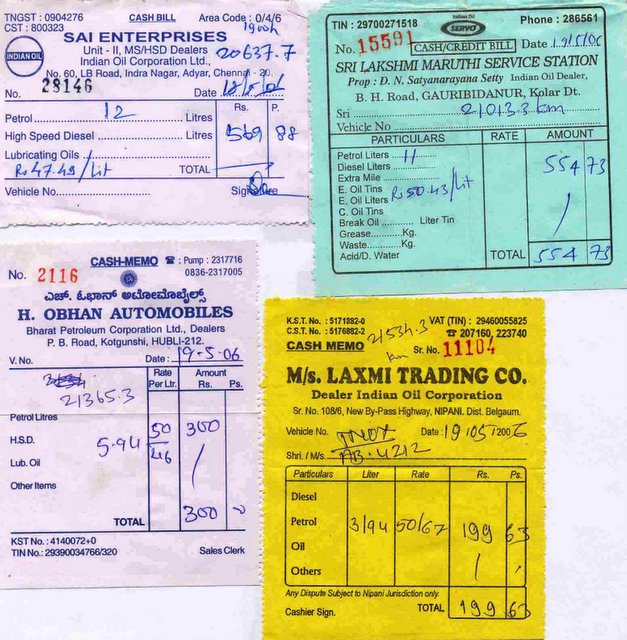 TNGST : 0904276 CASH BILL Area Code : 0/4/6
CST : 800323
SAI ENTERPRISES
INDIANOIL
Unit - II, MS/HSD Dealers 20637.7
Indian Oil Corporation Ltd.,
No. 60, LB Road, Indra Nagar, Adyar, Chennai - 20.
No. 28146 Date
Rs. P.
Petrol 12 Litres
High Speed Diesel Litres 569 88
Lubricating Oils
Rs 47.49/Lit TOTAL
Vehicle No. Signature
Indian Oil
SERVO
TIN : 29700271518 Phone : 286561
No. 15591 CASH/CREDIT BILL Date 19/5/06
SRI LAKSHMI MARUTHI SERVICE STATION
Prop : D. N. Satyanarayana Setty Indian Oil Dealer,
B. H. Road, GAURIBIDANUR, Kolar Dt.
Sri 21013.3 km
Vehicle No
PARTICULARS RATE AMOUNT
Petrol Liters 11 554 73
Diesel Liters
Extra Mile
E. Oil Tins Rs 50.43/Lit
E. Oil Liters
C. Oil Tins
Break Oil Liter Tin
Grease Kg.
Waste Kg.
Acid/D. Water TOTAL 554 73
CASH-MEMO ☎ : Pump : 2317716
No. 2116 0836-2317005
ಎಚ್. ಓಭಾನ್ ಅಟೋಮೊಬೈಲ್ಸ್
H. OBHAN AUTOMOBILES
Bharat Petroleum Corporation Ltd., Dealers
P. B. Road, Kotgunshi, HUBLI-212.
V. No. Date : 19-5-06
21365.3
Rate Per Ltr. Amount Rs. Ps.
Petrol Litres 300
H.S.D. 5.94 50/46
Lub. Oil
Other Items
TOTAL 300
KST No : 4140072+0
TIN No : 29390034766/320 Sales Clerk
K.S.T. No. : 5171882-0 VAT (TIN) : 29460055825
C.S.T. No. : 5176882-2 21534.3 km ☎ 207160, 223740
CASH MEMO Sr. No. 11104
M/s. LAXMI TRADING CO.
Dealer Indian Oil Corporation
Sr. No. 108/6, New By-Pass Highway, NIPANI. Dist. Belgaum.
Vehicle No. TN07 Date : 19/05/2006
Shri. / M/s. AB-4212
Particulars Liter Rate Rs. Ps.
Diesel
Petrol 3/94 50/67 199 63
Oil
Others
Any Dispute Subject to Nipani Jurisdiction only.
Cashier Sign. TOTAL 199 63